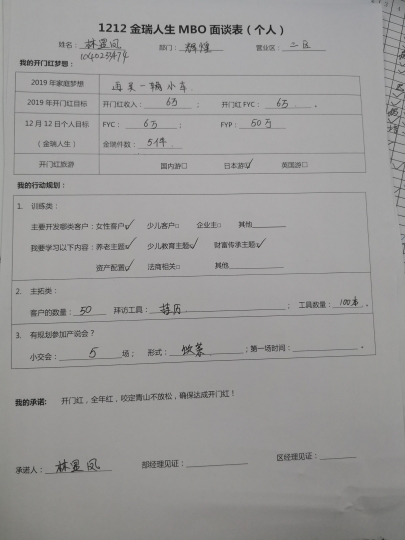 1212金瑞人生MBO面谈表（个人）
姓名：林显凤 部门：辉煌 营业区：二区
我的开门红梦想：
2019年家庭梦想 再买一辆小车
2019年开门红目标 开门红收入：6万； 开门红FYC：6万。
12月12日个人目标（金瑞人生） FYC：6万； FYP：50万
金瑞件数：5件
开门红旅游 国内游□ 日本游☑ 英国游□
我的行动规划：
1. 训练类：
主要开发哪类客户：女性客户☑ 少儿客户□ 企业主□ 其他
我要学习以下内容：养老主题☑ 少儿教育主题☑ 财富传承主题☑
资产配置☑ 法商相关□ 其他
2. 主拓类：
客户的数量：50 拜访工具：； 工具数量：100本。
3. 有规划参加产说会？
小交会：5场； 形式：饮茶；第一场时间：。
我的承诺： 开门红，全年红，咬定青山不放松，确保达成开门红！
承进人：林显凤 部经理见证： 区经理见证：